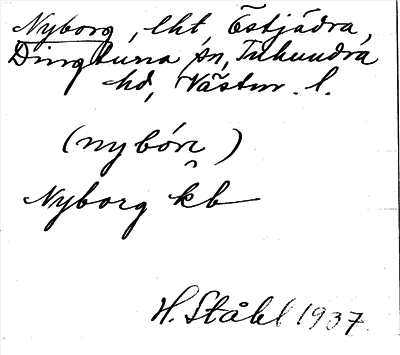 Nyborg, lht, Östjädra,
Dingtuna sn, Tuhundra
hd, Västm. l.
(nybór̯i)
Nyborg kb
H. Ståhl 1937.